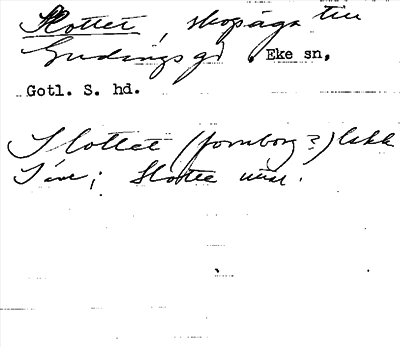 Slottet, skogsäga till
Gudings gd. Eke sn,
Gotl. S. hd.
Slottet (fornborg?) lskk
Säve; Slottet